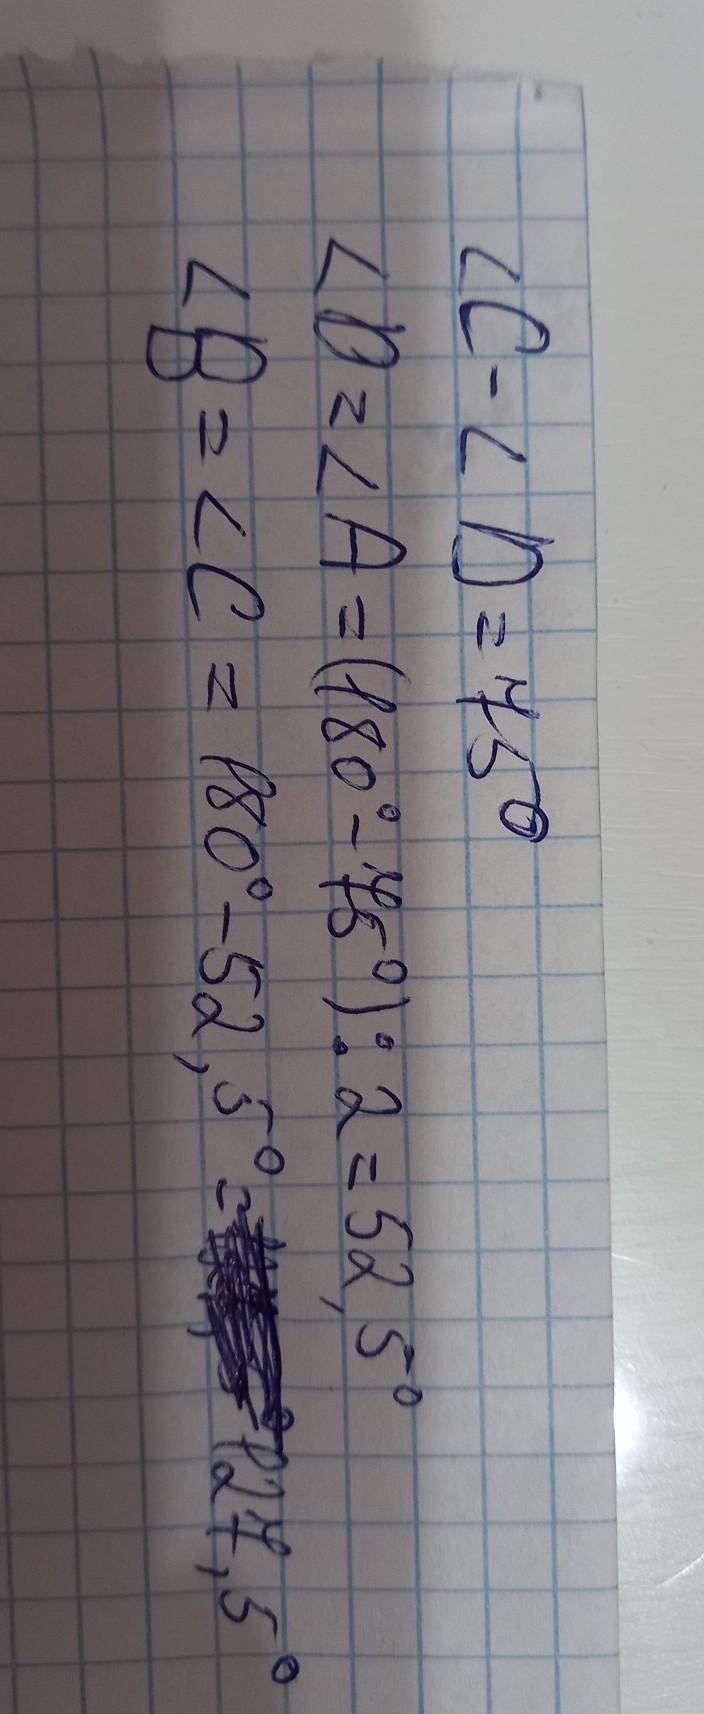 ∠C - ∠D = 75°
∠D = ∠A = (180° - 75°) : 2 = 52,5°
∠B = ∠C = 180° - 52,5° = 127,5°